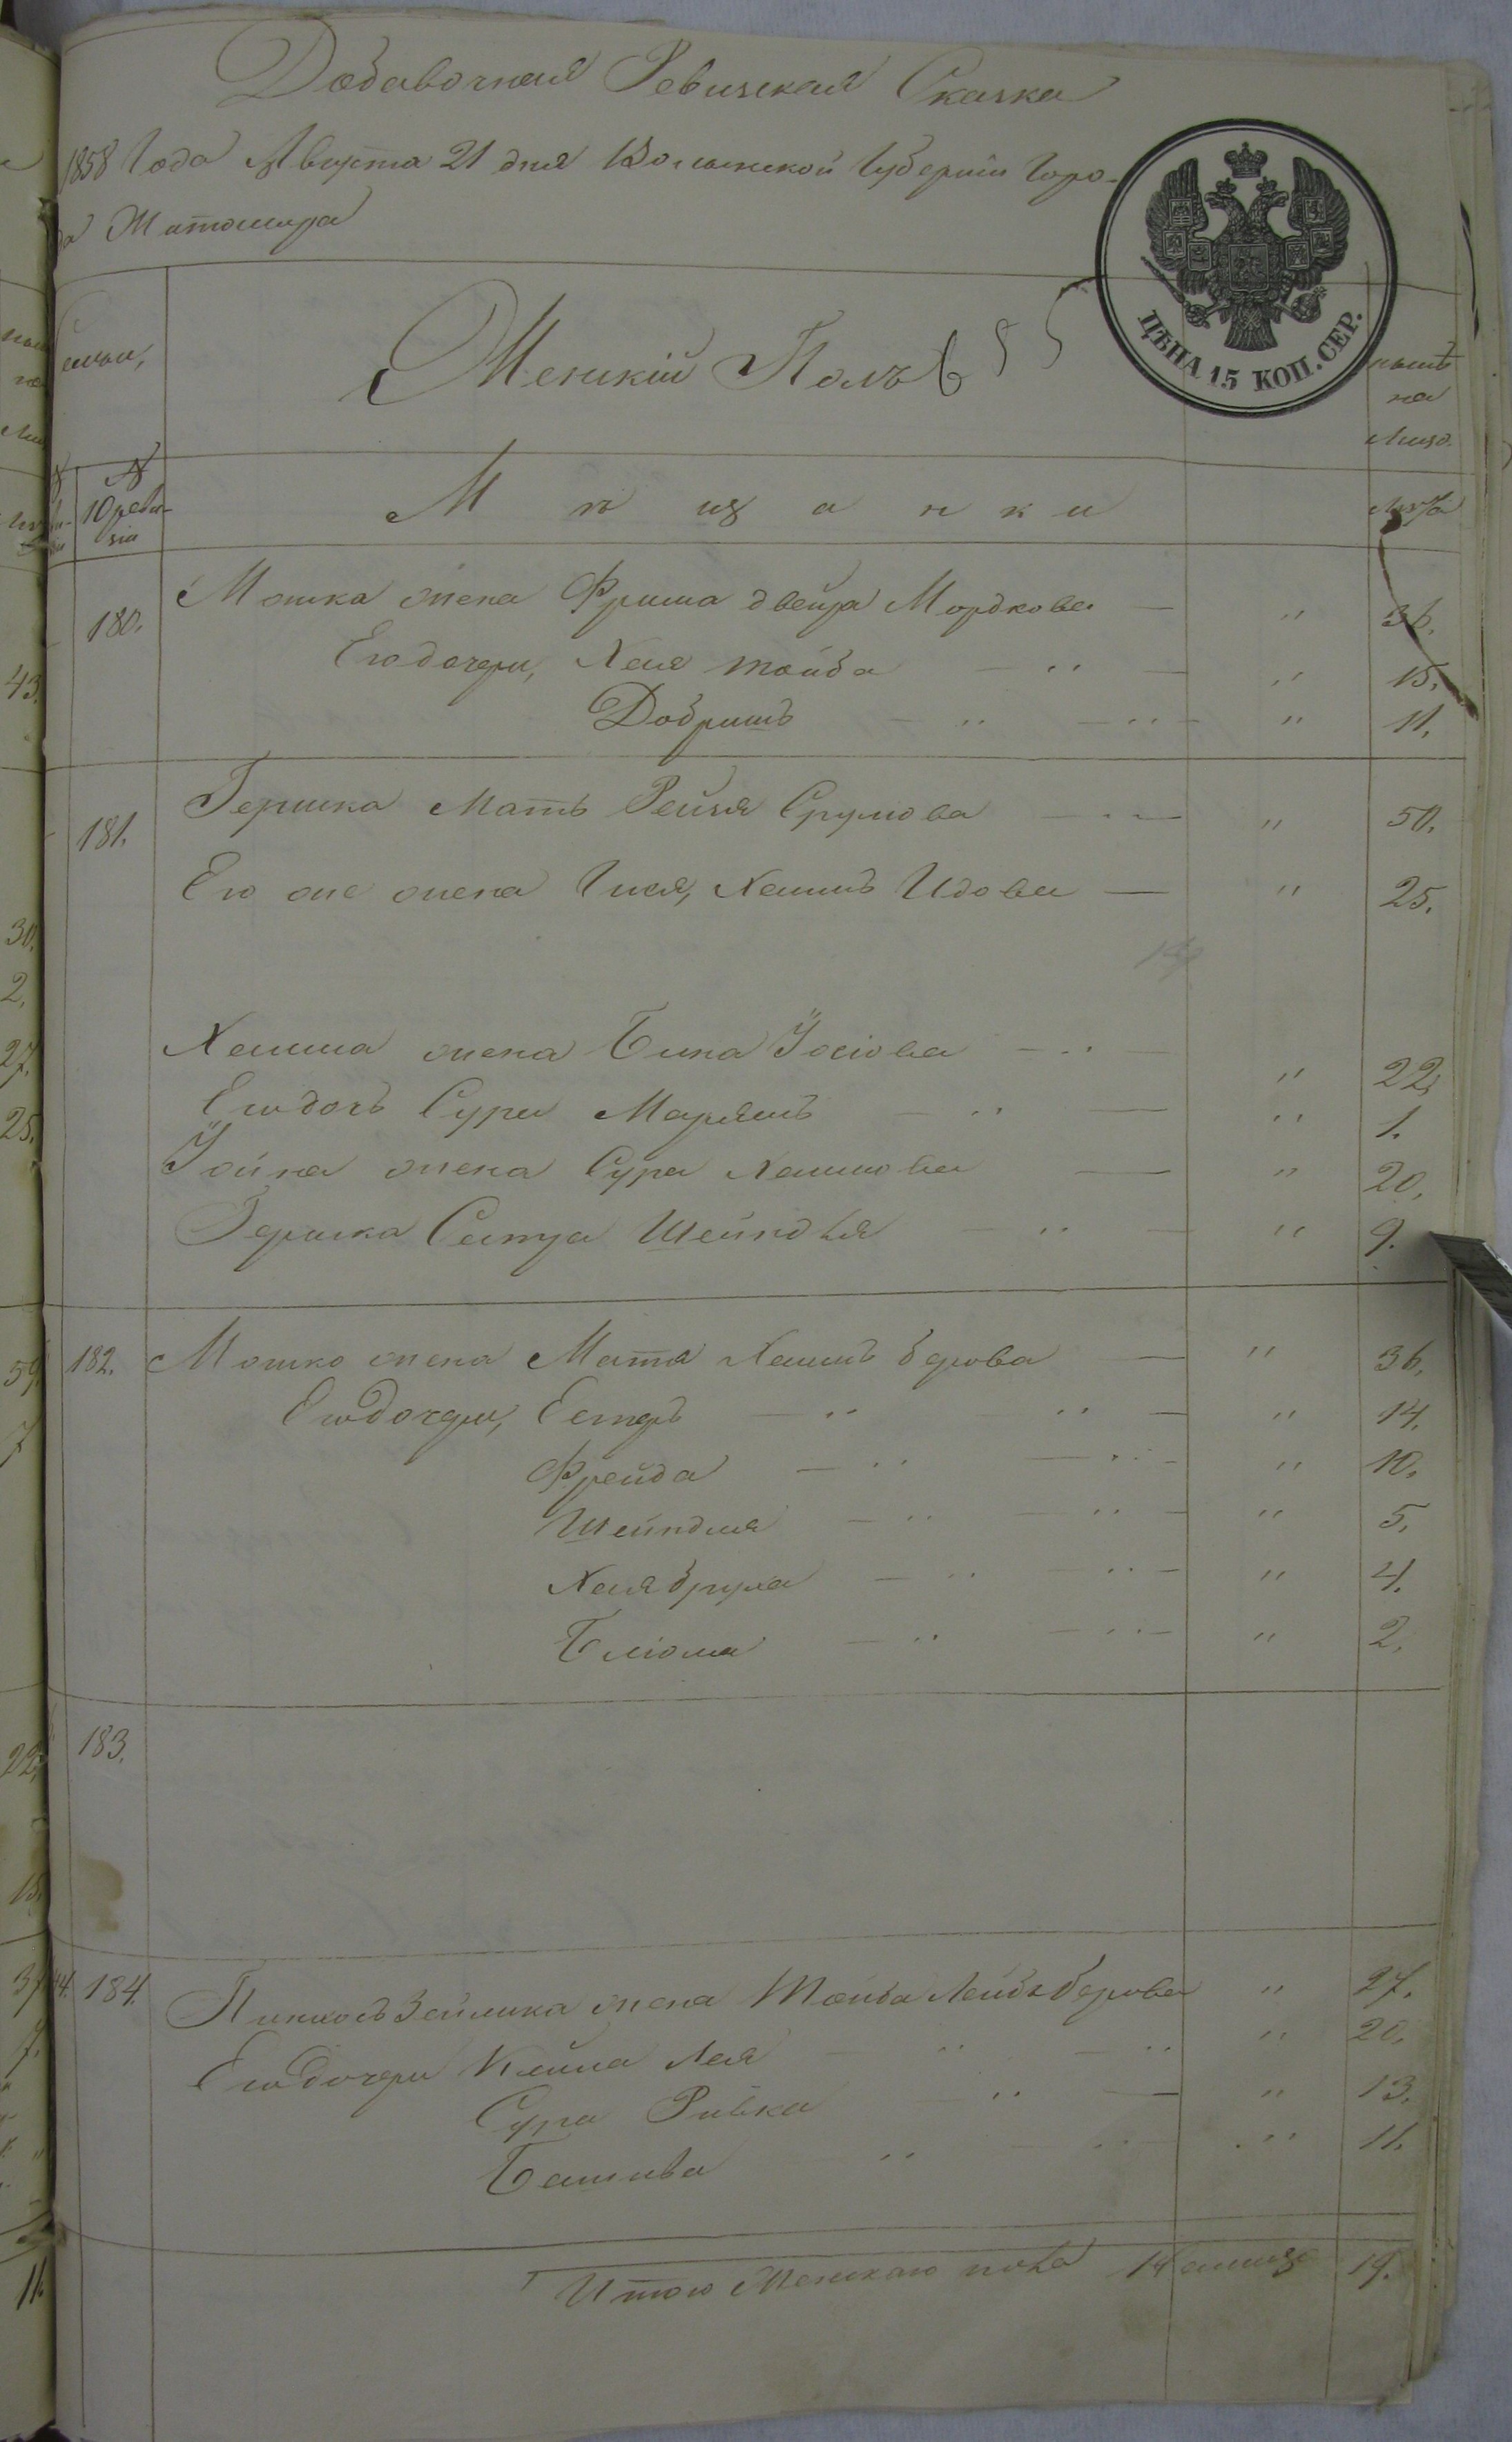 Добавочная Ревизская Сказка
1858 Года Августа 21 дня Волынской Губерніи Горо-
да Житомира
ЦѢНА 15 КОП. СЕР.
Семьи,
Женскій Полъ
655
нынѣ
на
лицо.
№ №
10 реви-
зіи
Мѣщанки
Лѣта
180. Мошка жена Фрима двейра Мордкова — " 36.
Его дочери, Хая тойба — " — " 15.
Добришъ — " — " — " 11.
181. Гершка Мать Рейзя Срулова — " — " 50.
Его же жена Гися, Хаимъ Идова — " 25.
Хаима жена Бина Іосіова — " — " 22.
Его дочь Сура Маріямъ — " — " 1.
Іойна жена Сура Хаимова — " 20.
Гершка Сестра Шейндля — " — " 9.
182. Мошко жена Матя Хаимъ берова — " 36.
Его Дочери, Естеръ — " — " — " 14.
Фрейда — " — " — " 10.
Шейндля — " — " — " 5.
Хая брука — " — " — " 4.
Бліома — " — " — " 2.
183.
184. Пинхосъ Зейлика жена Тойба Лейбъ берова " 27.
Его Дочери Кейла Лея — " — " " 20.
Сура Ривка — " — " 13.
Башива — " — " — " 11.
Итого Женскаго пола на лицо 19.